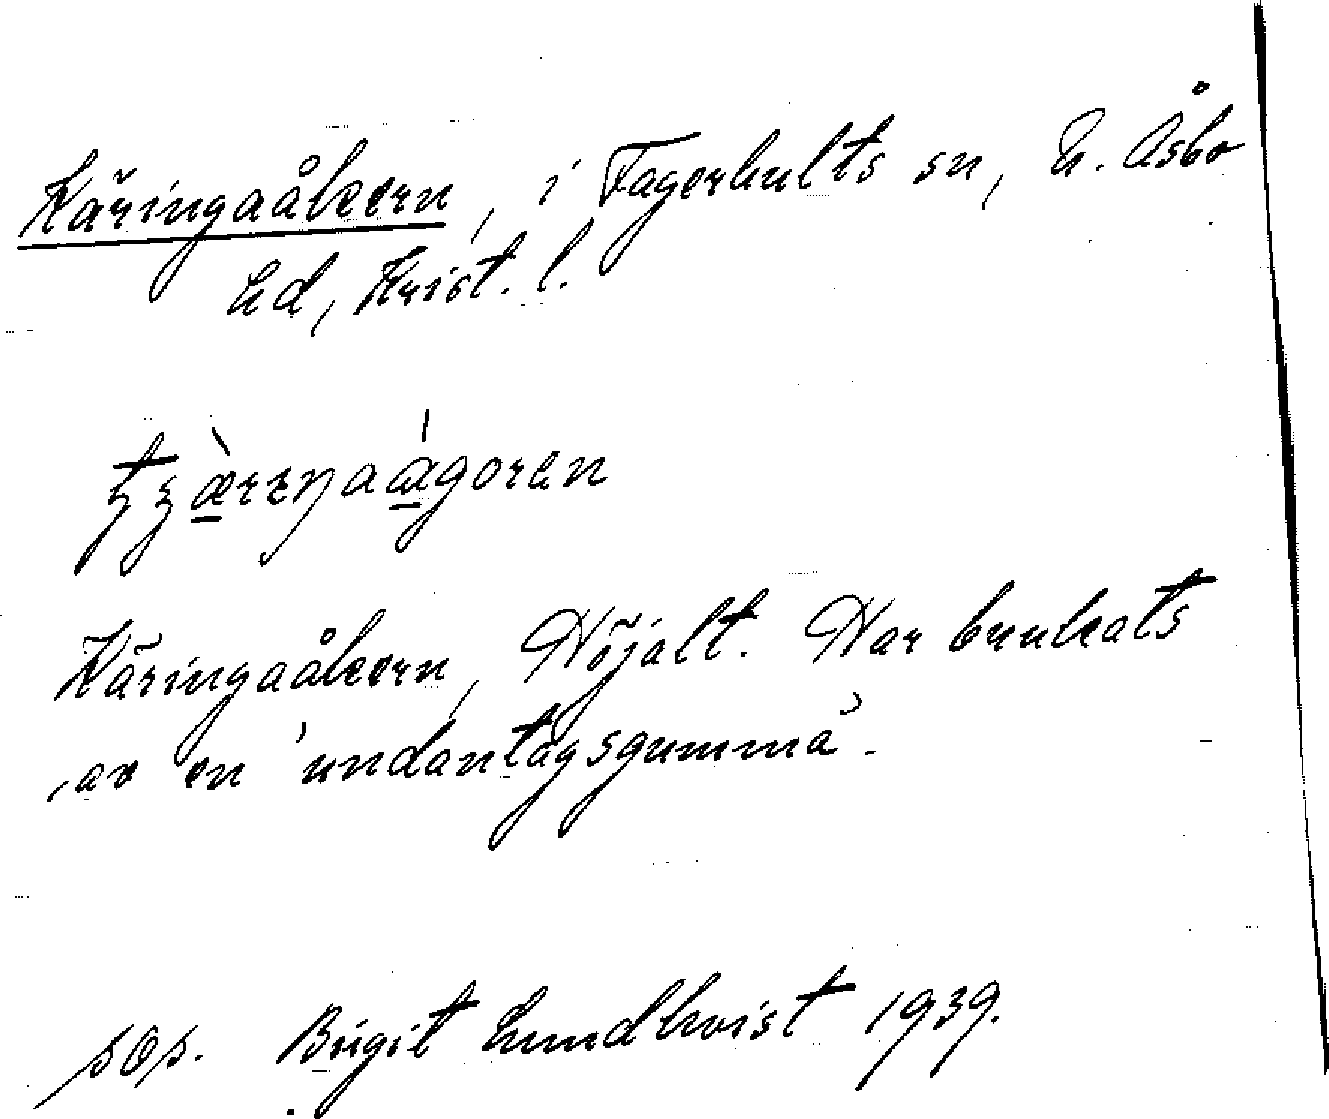 Käringaåkern, i Fagerhults sn, N. Åsbo
hd, Krist. l.
Käringaåkern, Höjalt. Har brukats
av en undantagsgumma.
sos. Birgit Lundkvist 1939.